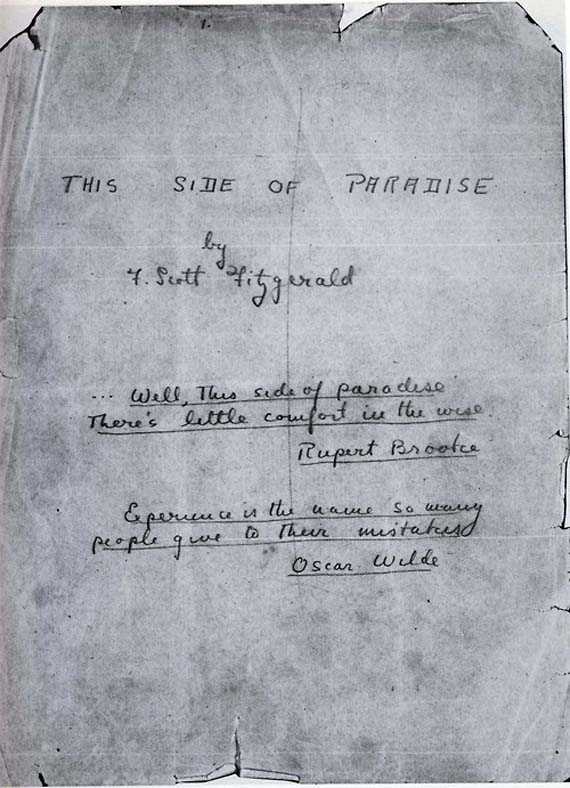 1.
THIS SIDE OF PARADISE
by
F. Scott Fitzgerald
... Well, This side of paradise
There's little comfort in the wise.
Rupert Brooke
Experience is the name so many
people give to their mistakes
Oscar Wilde